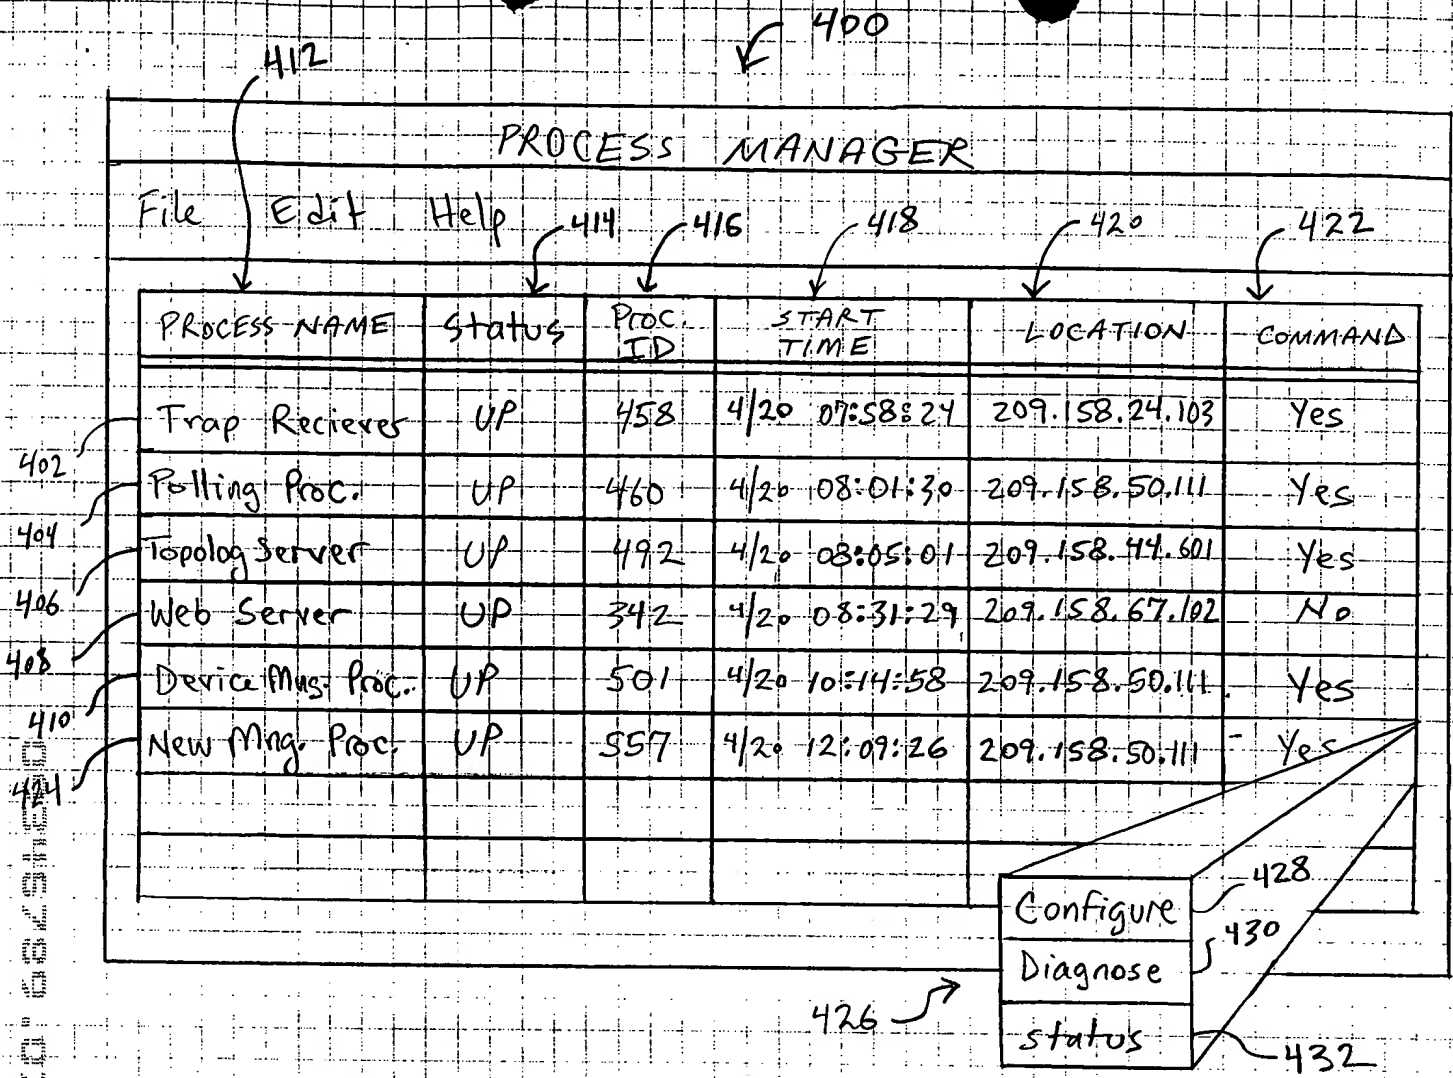 400
412
PROCESS MANAGER
File Edit Help
414 416 418 420 422
PROCESS NAME Status Proc. ID START TIME LOCATION COMMAND
402 Trap Reciever UP 458 4/20 07:58:24 209.158.24.103 Yes
404 Polling Proc. UP 460 4/20 08:01:30 209.158.50.111 Yes
406 Topolog Server UP 492 4/20 08:05:01 209.158.44.601 Yes
408 Web Server UP 342 4/20 08:31:29 209.158.67.102 No
410 Device Mng. Proc. UP 501 4/20 10:14:58 209.158.50.111 Yes
424 New Mng. Proc. UP 557 4/20 12:09:26 209.158.50.111 Yes
Configure 428
Diagnose 430
426
Status 432